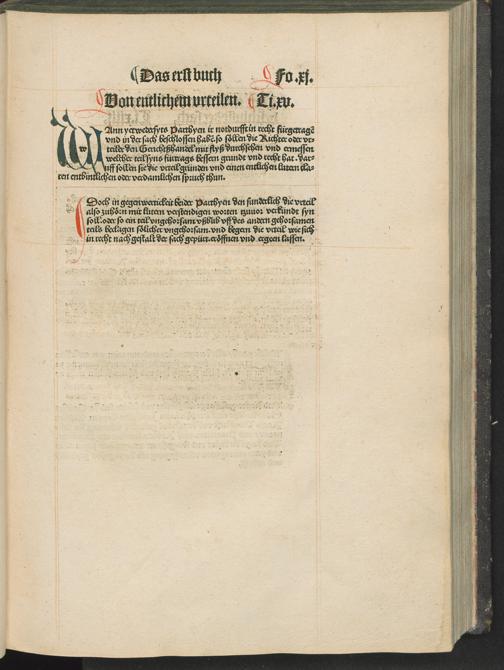 Das erst buch Fo .xj.
Von entlichem vrteilen. Ti.xv.
WAnn yetwedersyts Parthyen ir notdurfft in recht fürgetragē
vnd in der sach beschlossen habē. so söllen die Richter oder vr⸗
teilder den Gerichtshandel mit flyß durchsehen vnd ermessen
wellher teil syns fürtrags bessern grundt vnd recht hat. dar⸗
uff söllen sie die vrteil gründen vnd einen entlichen lutern kla⸗
ren entbintlichen oder verdamlichen spruch thun.
Doch in gegenwertickeit beider Parthyen den sunderlich die vrteil
also zuhörn mit lutern verstendigen worten zuuor verkündt syn
soll. oder so ein teil vngehorsam vßblib vff des andern gehorsamen
teils beclagen söllicher vngehorsam. vnd begern die vrteil wie sich
in recht nach gestalt der sach gepürt. eröffnen vnd ergeen lassen.